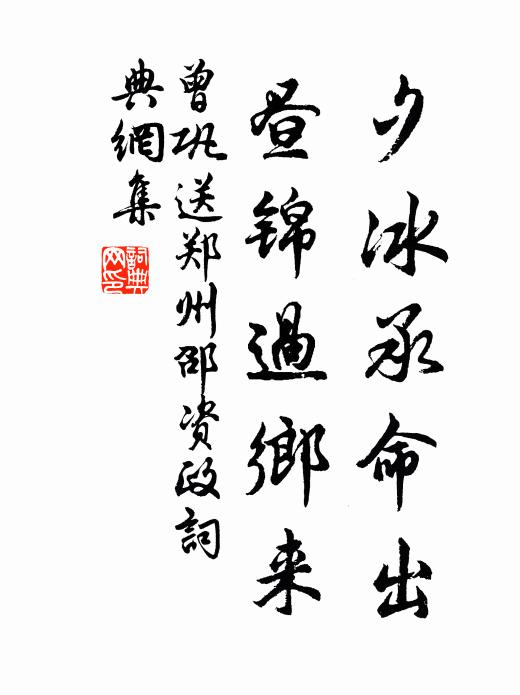 夕冰承命出
昼锦過鄉来
曾巩送郑州邵资政詞
典網集
詞典
网印